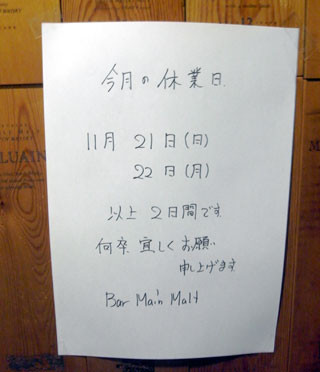 今月の休業日
11月 21日(日)
22日(月)
以上 2日間です
何卒 宜しくお願い
申し上げます
Bar Main Malt
WHISKY
12
LUAIN